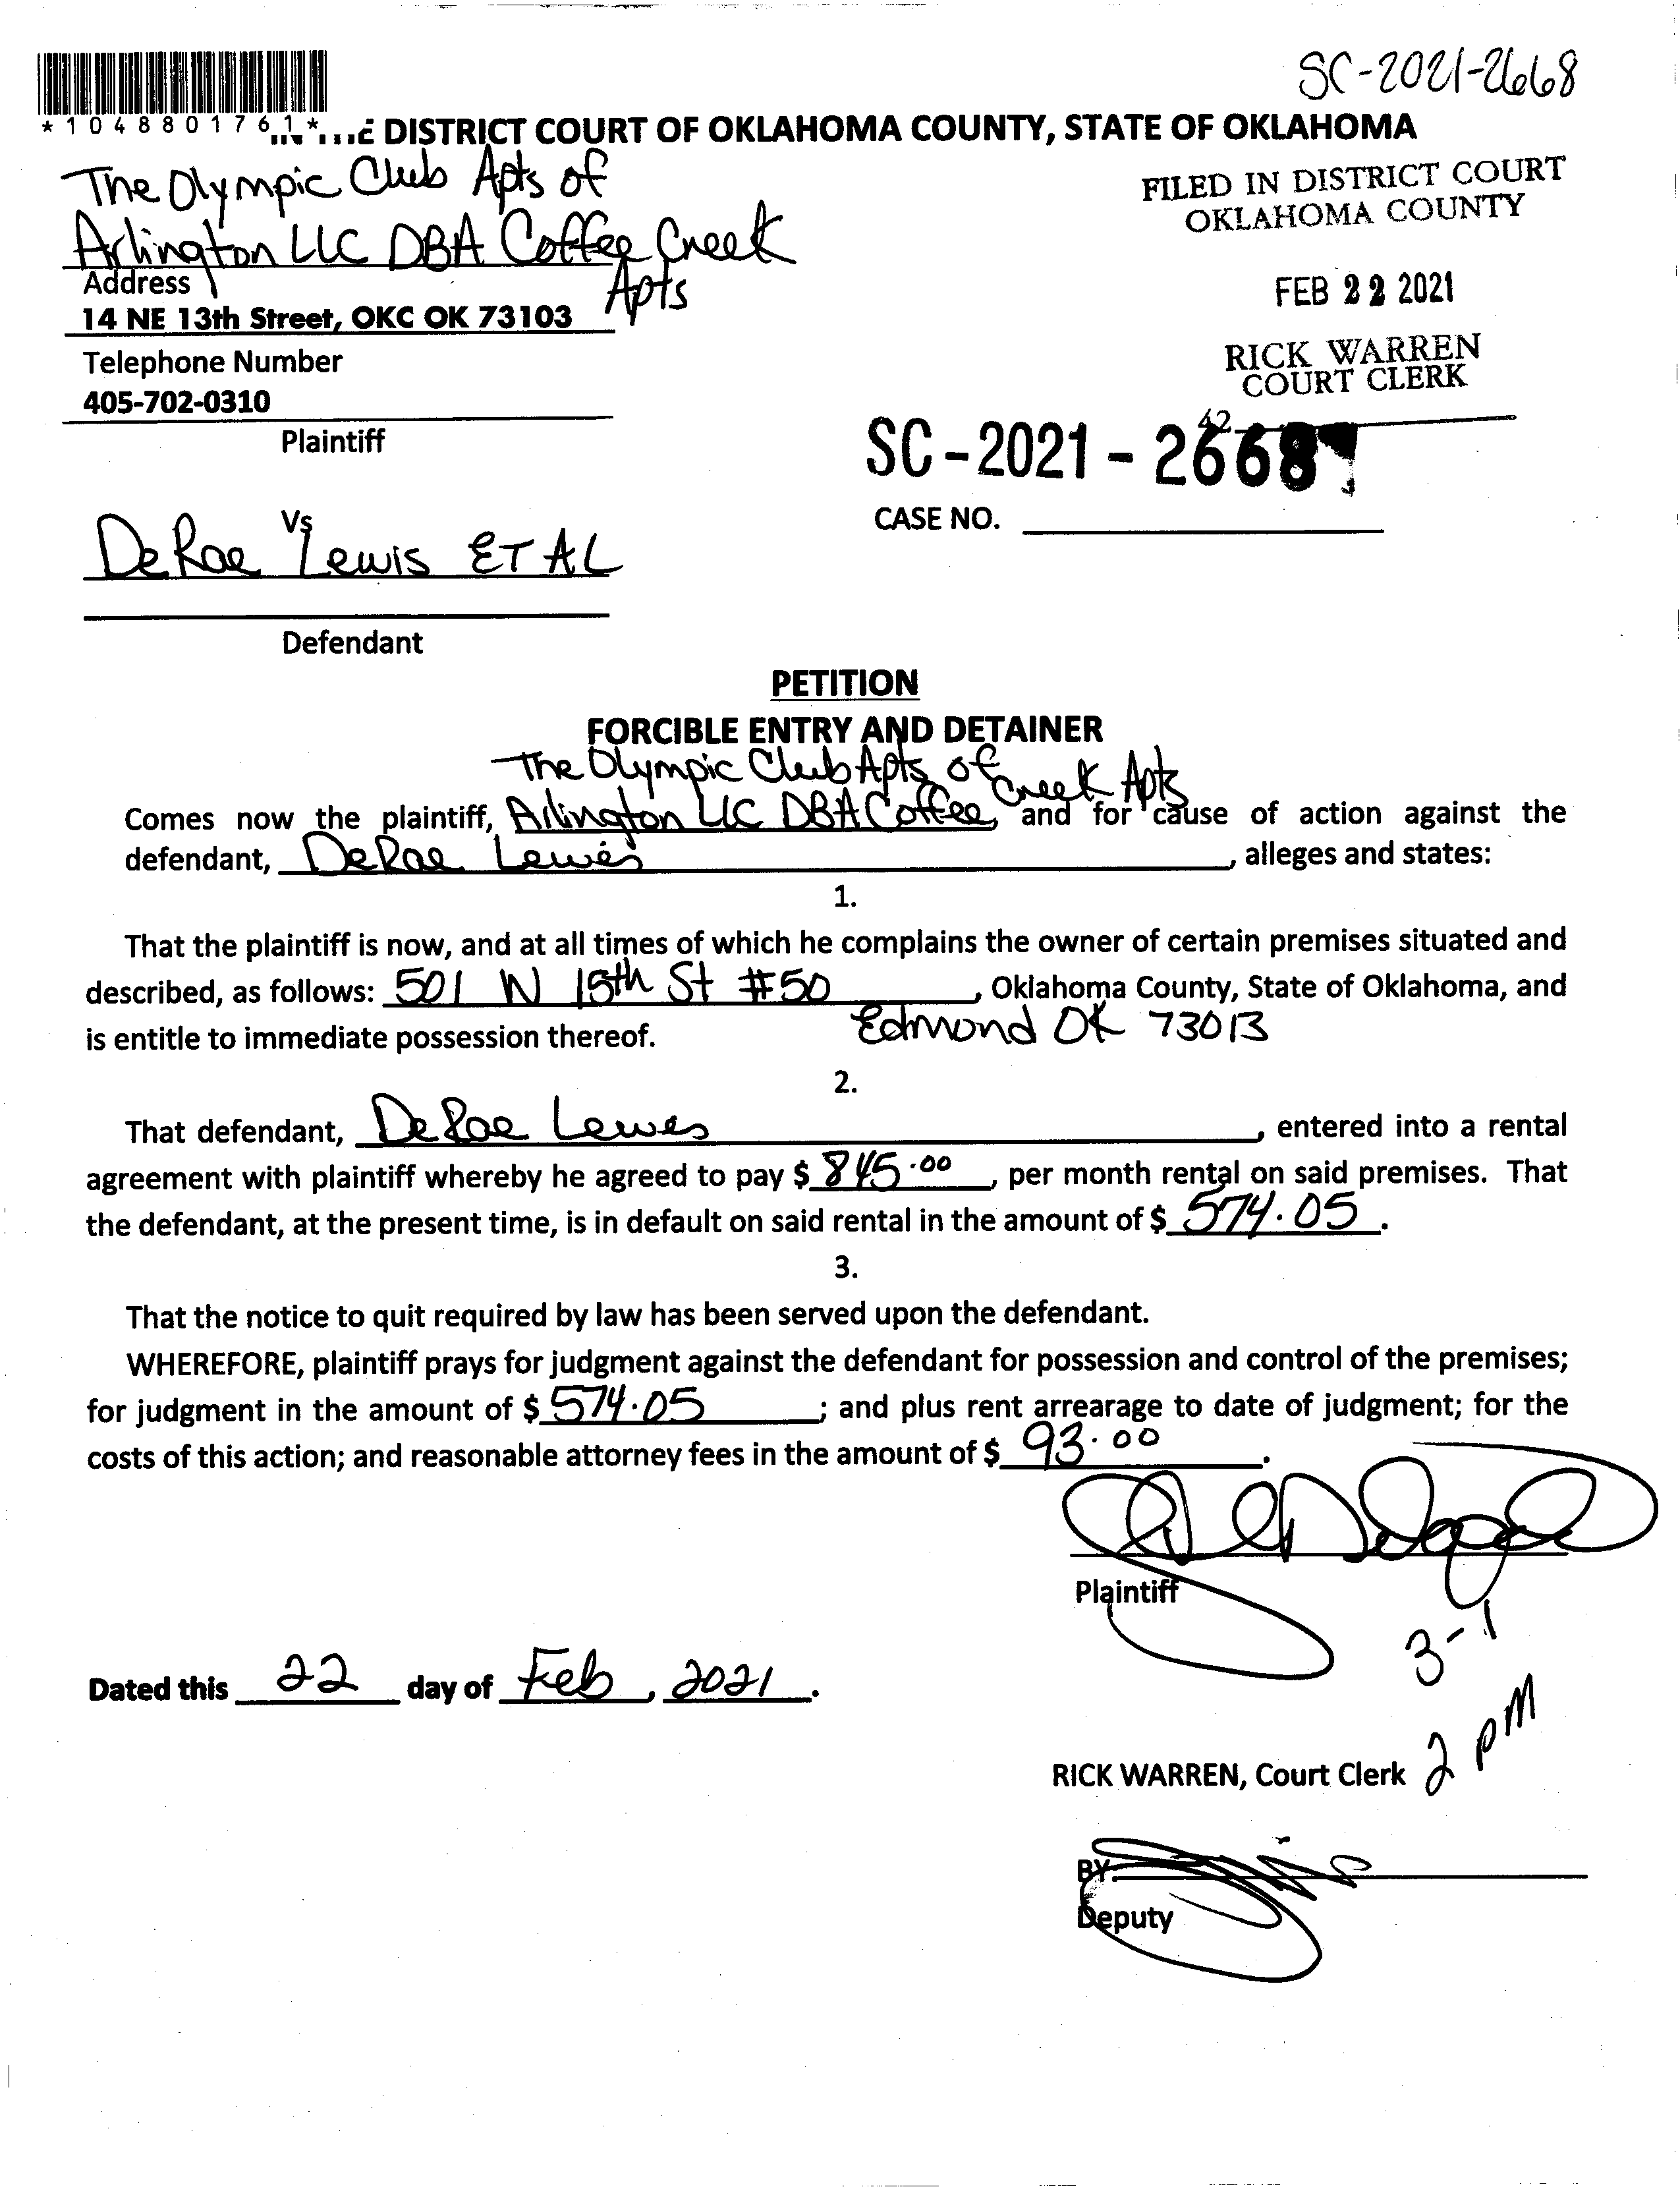 SC-2021-2668
*1048801761*
DISTRICT COURT OF OKLAHOMA COUNTY, STATE OF OKLAHOMA
The Olympic Club Apts of
Arlington LLC DBA Coffee Creek
Apts
Address
14 NE 13th Street, OKC OK 73103
Telephone Number
405-702-0310
Plaintiff
FILED IN DISTRICT COURT
OKLAHOMA COUNTY
FEB 22 2021
RICK WARREN
COURT CLERK
42
SC-2021-2668
CASE NO.
Vs
DeRae Lewis ET AL
Defendant
PETITION
FORCIBLE ENTRY AND DETAINER
The Olympic Club Apts of Creek Apts
Comes now the plaintiff, Arlington LLC DBA Coffee, and for cause of action against the
defendant, DeRae Lewis, alleges and states:
1.
That the plaintiff is now, and at all times of which he complains the owner of certain premises situated and
described, as follows: 501 W 15th St #50, Oklahoma County, State of Oklahoma, and
is entitle to immediate possession thereof. Edmond OK 73013
2.
That defendant, DeRae Lewis, entered into a rental
agreement with plaintiff whereby he agreed to pay $ 845.00, per month rental on said premises. That
the defendant, at the present time, is in default on said rental in the amount of $ 574.05.
3.
That the notice to quit required by law has been served upon the defendant.
WHEREFORE, plaintiff prays for judgment against the defendant for possession and control of the premises;
for judgment in the amount of $ 574.05; and plus rent arrearage to date of judgment; for the
costs of this action; and reasonable attorney fees in the amount of $ 93.00.
Plaintiff
3-1
2 pm
Dated this 22 day of Feb, 2021.
RICK WARREN, Court Clerk
BY
Deputy